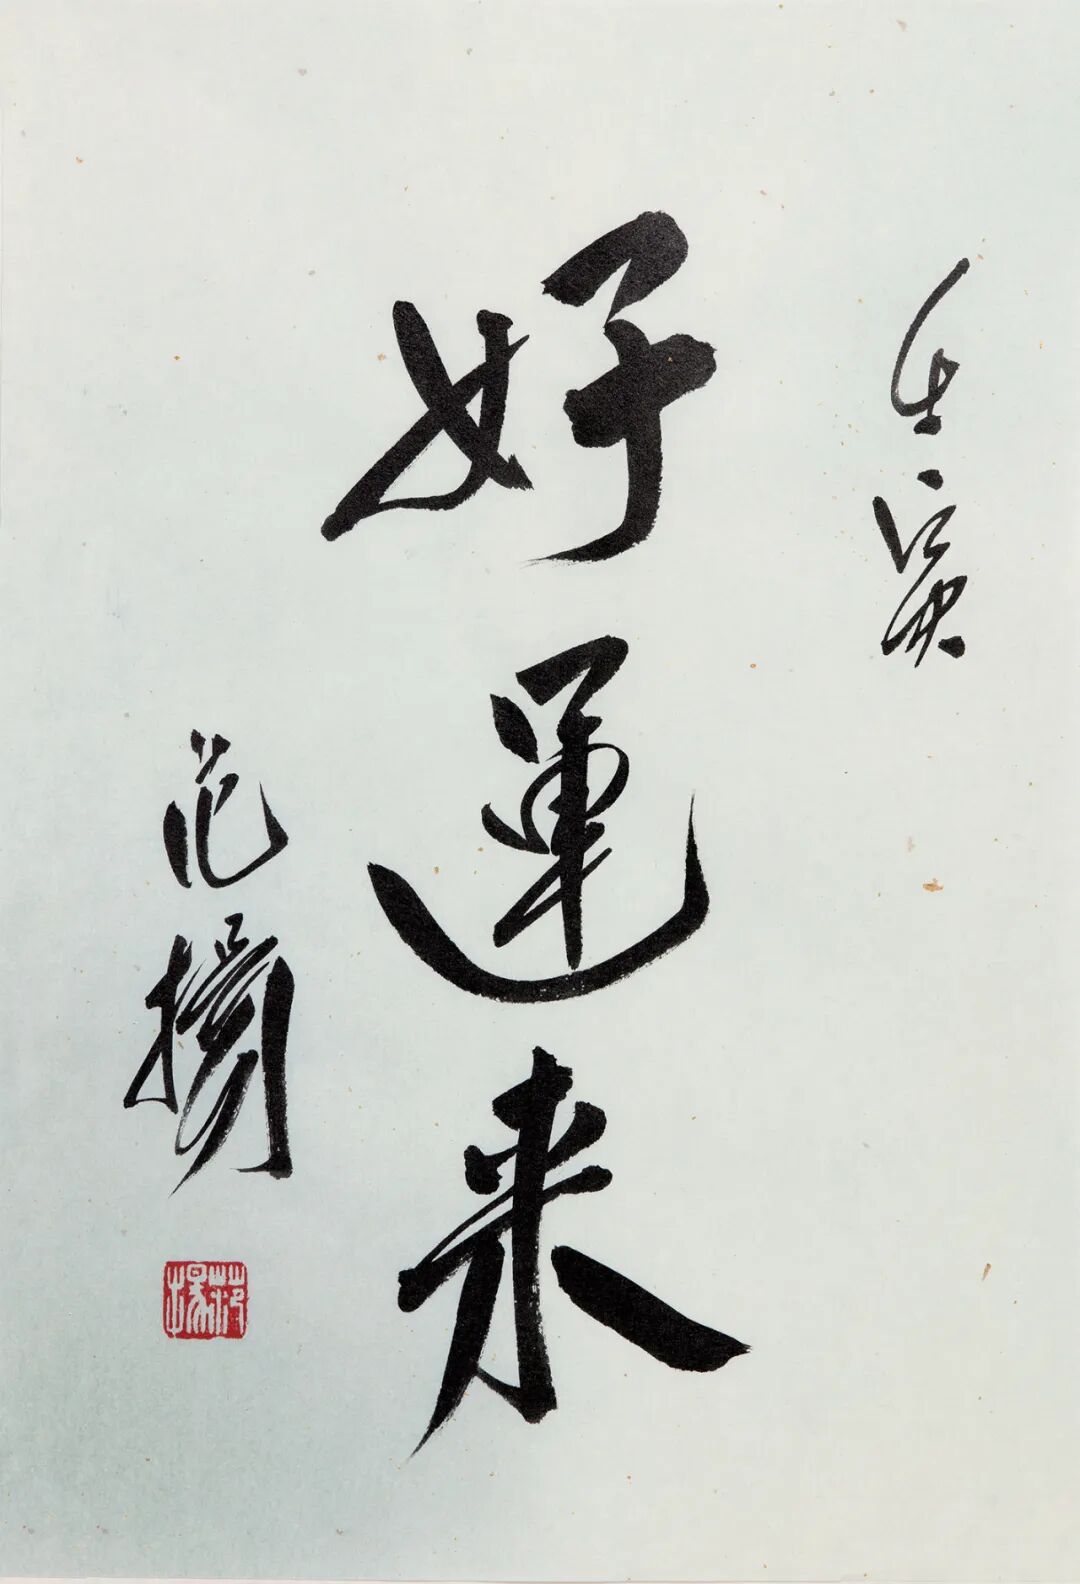 壬寅
好運来
范揚
范揚